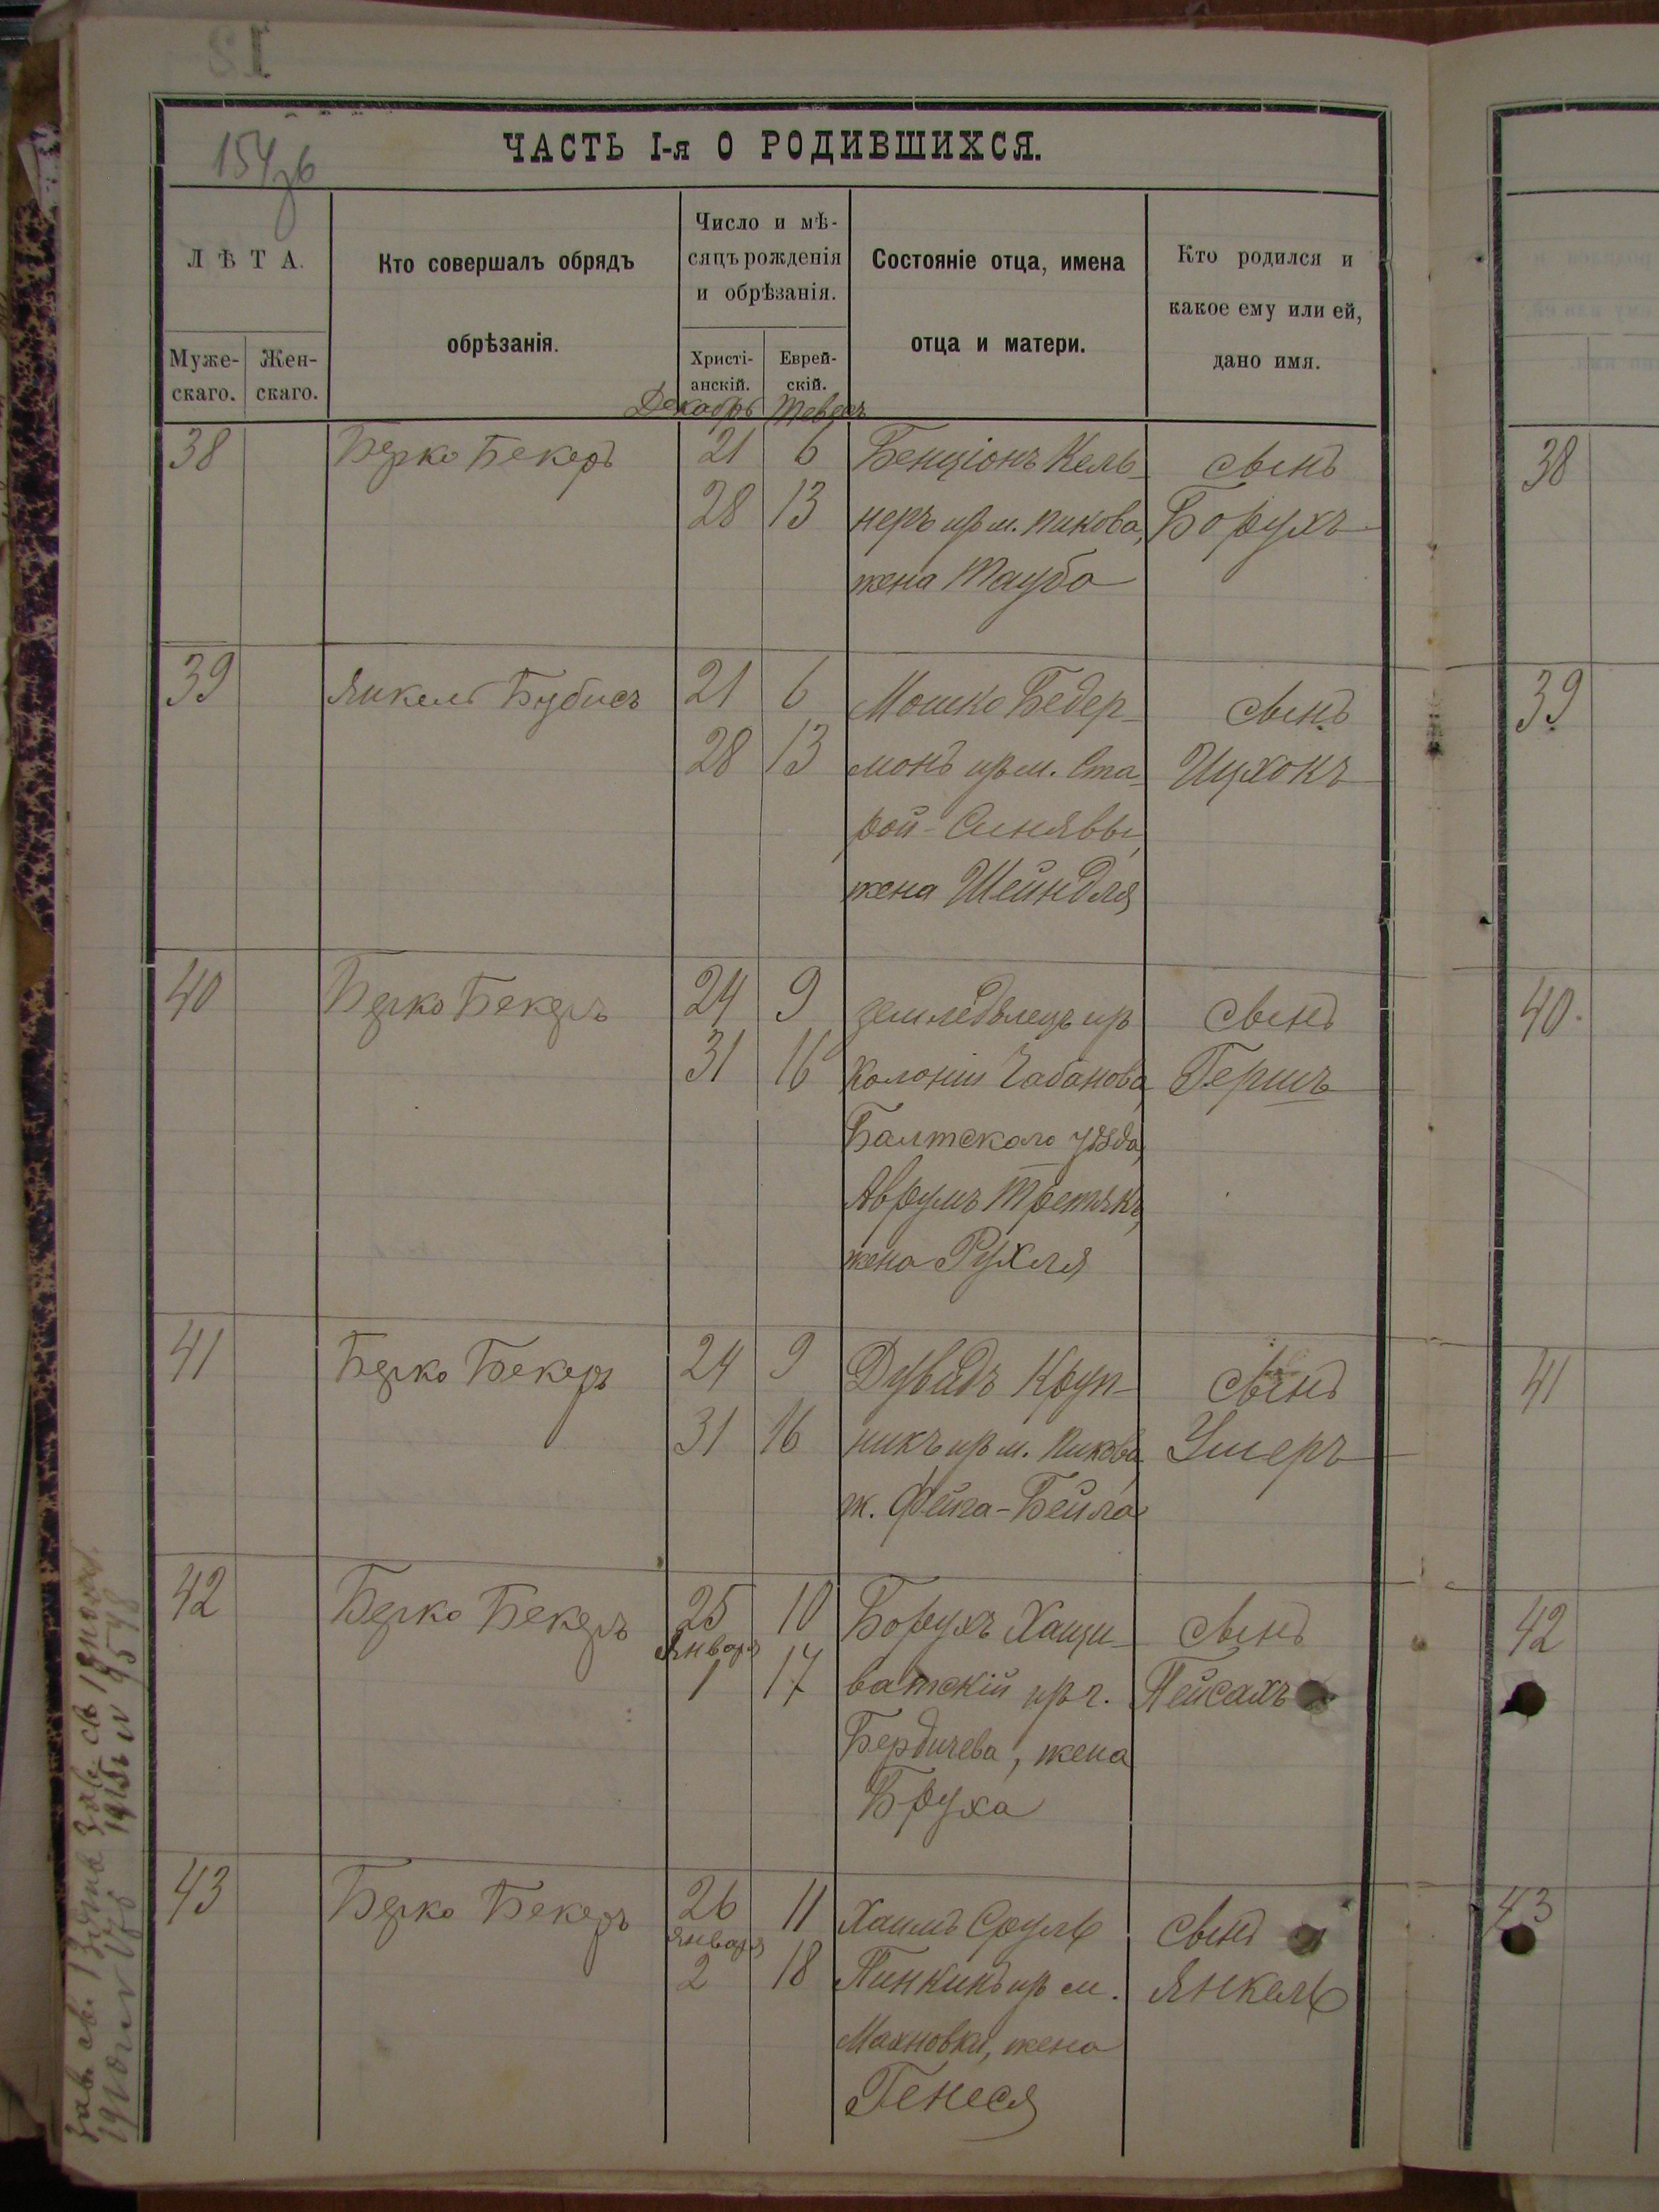 154зв
ЧАСТЬ I-я О РОДИВШИХСЯ.
ЛѢТА.
Муже-
скаго.
Жен-
скаго.
Кто совершалъ обрядъ
обрѣзанія.
Число и мѣ-
сяцъ рожденія
и обрѣзанія.
Христі-
анскій.
Еврей-
скій.
Состояніе отца, имена
отца и матери.
Кто родился и
какое ему или ей,
дано имя.
Декабрь Тевесъ
38 Берко Бекеръ 21 6 Бенціонъ Кель- сынъ 38
28 13 неръ изъ м. Пикова, Борухъ
жена Тауба
39 Янкель Бубисъ 21 6 Мошко Бедер- сынъ 39
28 13 монъ изъ м. Ста- Ицхокъ
рой-Синявы,
жена Шейндля
40 Берко Бекеръ 24 9 земледѣлецъ изъ сынъ 40
31 16 колоніи Чабанова, Гершъ
Балтскаго уѣзда,
Аврумъ Третякъ,
жена Рухля
41 Берко Бекеръ 24 9 Дувидъ Круп- сынъ 41
31 16 никъ изъ м. Пикова, Ушеръ
ж. Фейга-Бейла
42 Берко Бекеръ 25 10 Борухъ Хащи- сынъ 42
Января
1 17 ватскій изъ г. Пейсахъ
Бердичева, жена
Бруха
43 Берко Бекеръ 26 11 Хаимъ Сруль сынъ 43
Января
2 18 Пинкинъ изъ м. Янкель
Махновки, жена
Генеся